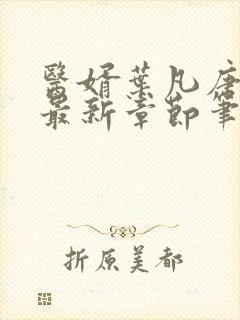 醫婿葉凡唐
最新章節筆
折原美都